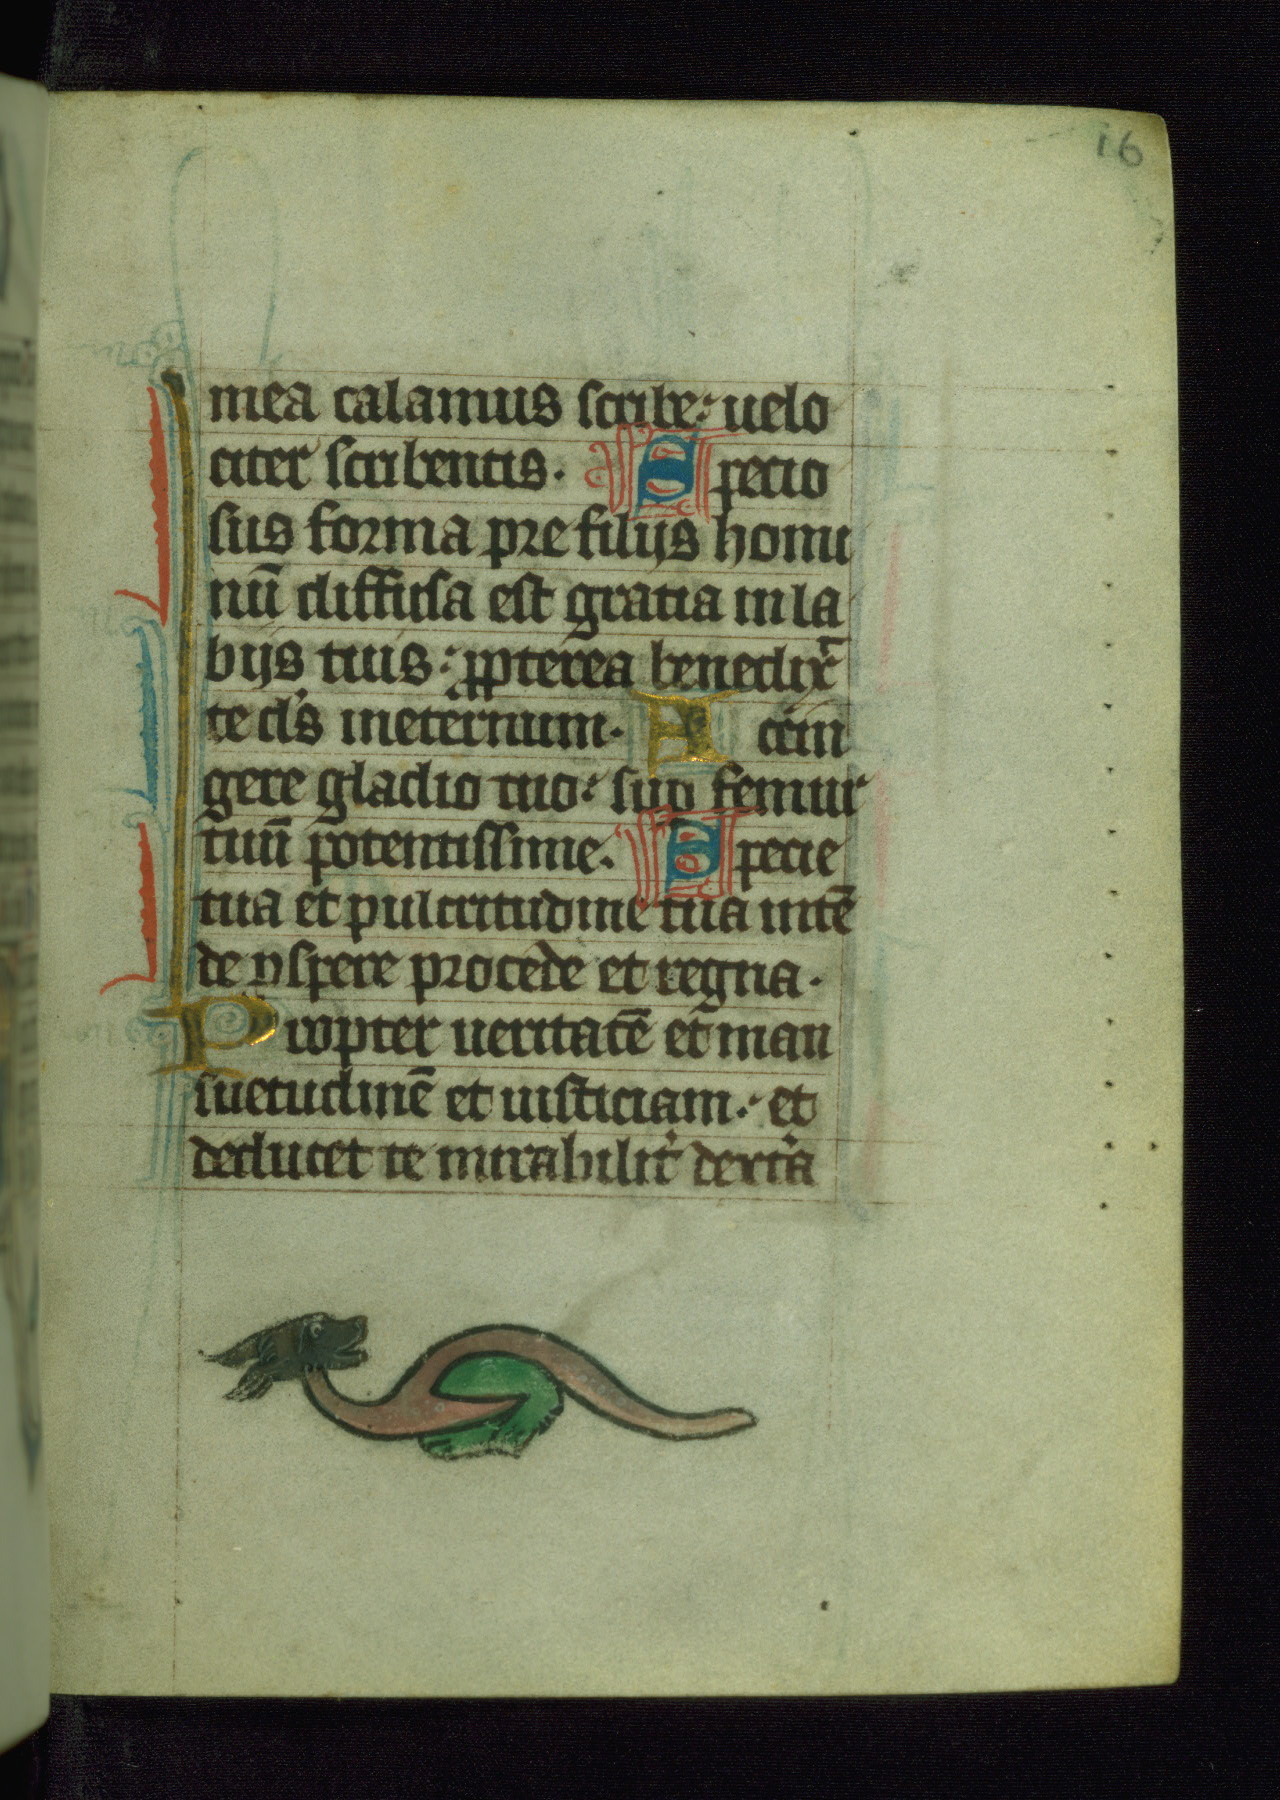 16
mea calamus scribe: uelo
citer scribentis. Specio
sus forma pre filijs homi
nū diffusa est gratia in la
bijs tuis: ꝓpterea benedixͬ
te ds̄ in eternum. Accin
gere gladio tuo: sup̱ femur
tuū potentissime. Specie
tua et pulcritudine tua intē
de ꝓspere procede et regna.
Propter ueritatē et man
suetudinē et iusticiam: et
deducet te mirabilit᷑ dext᷑a